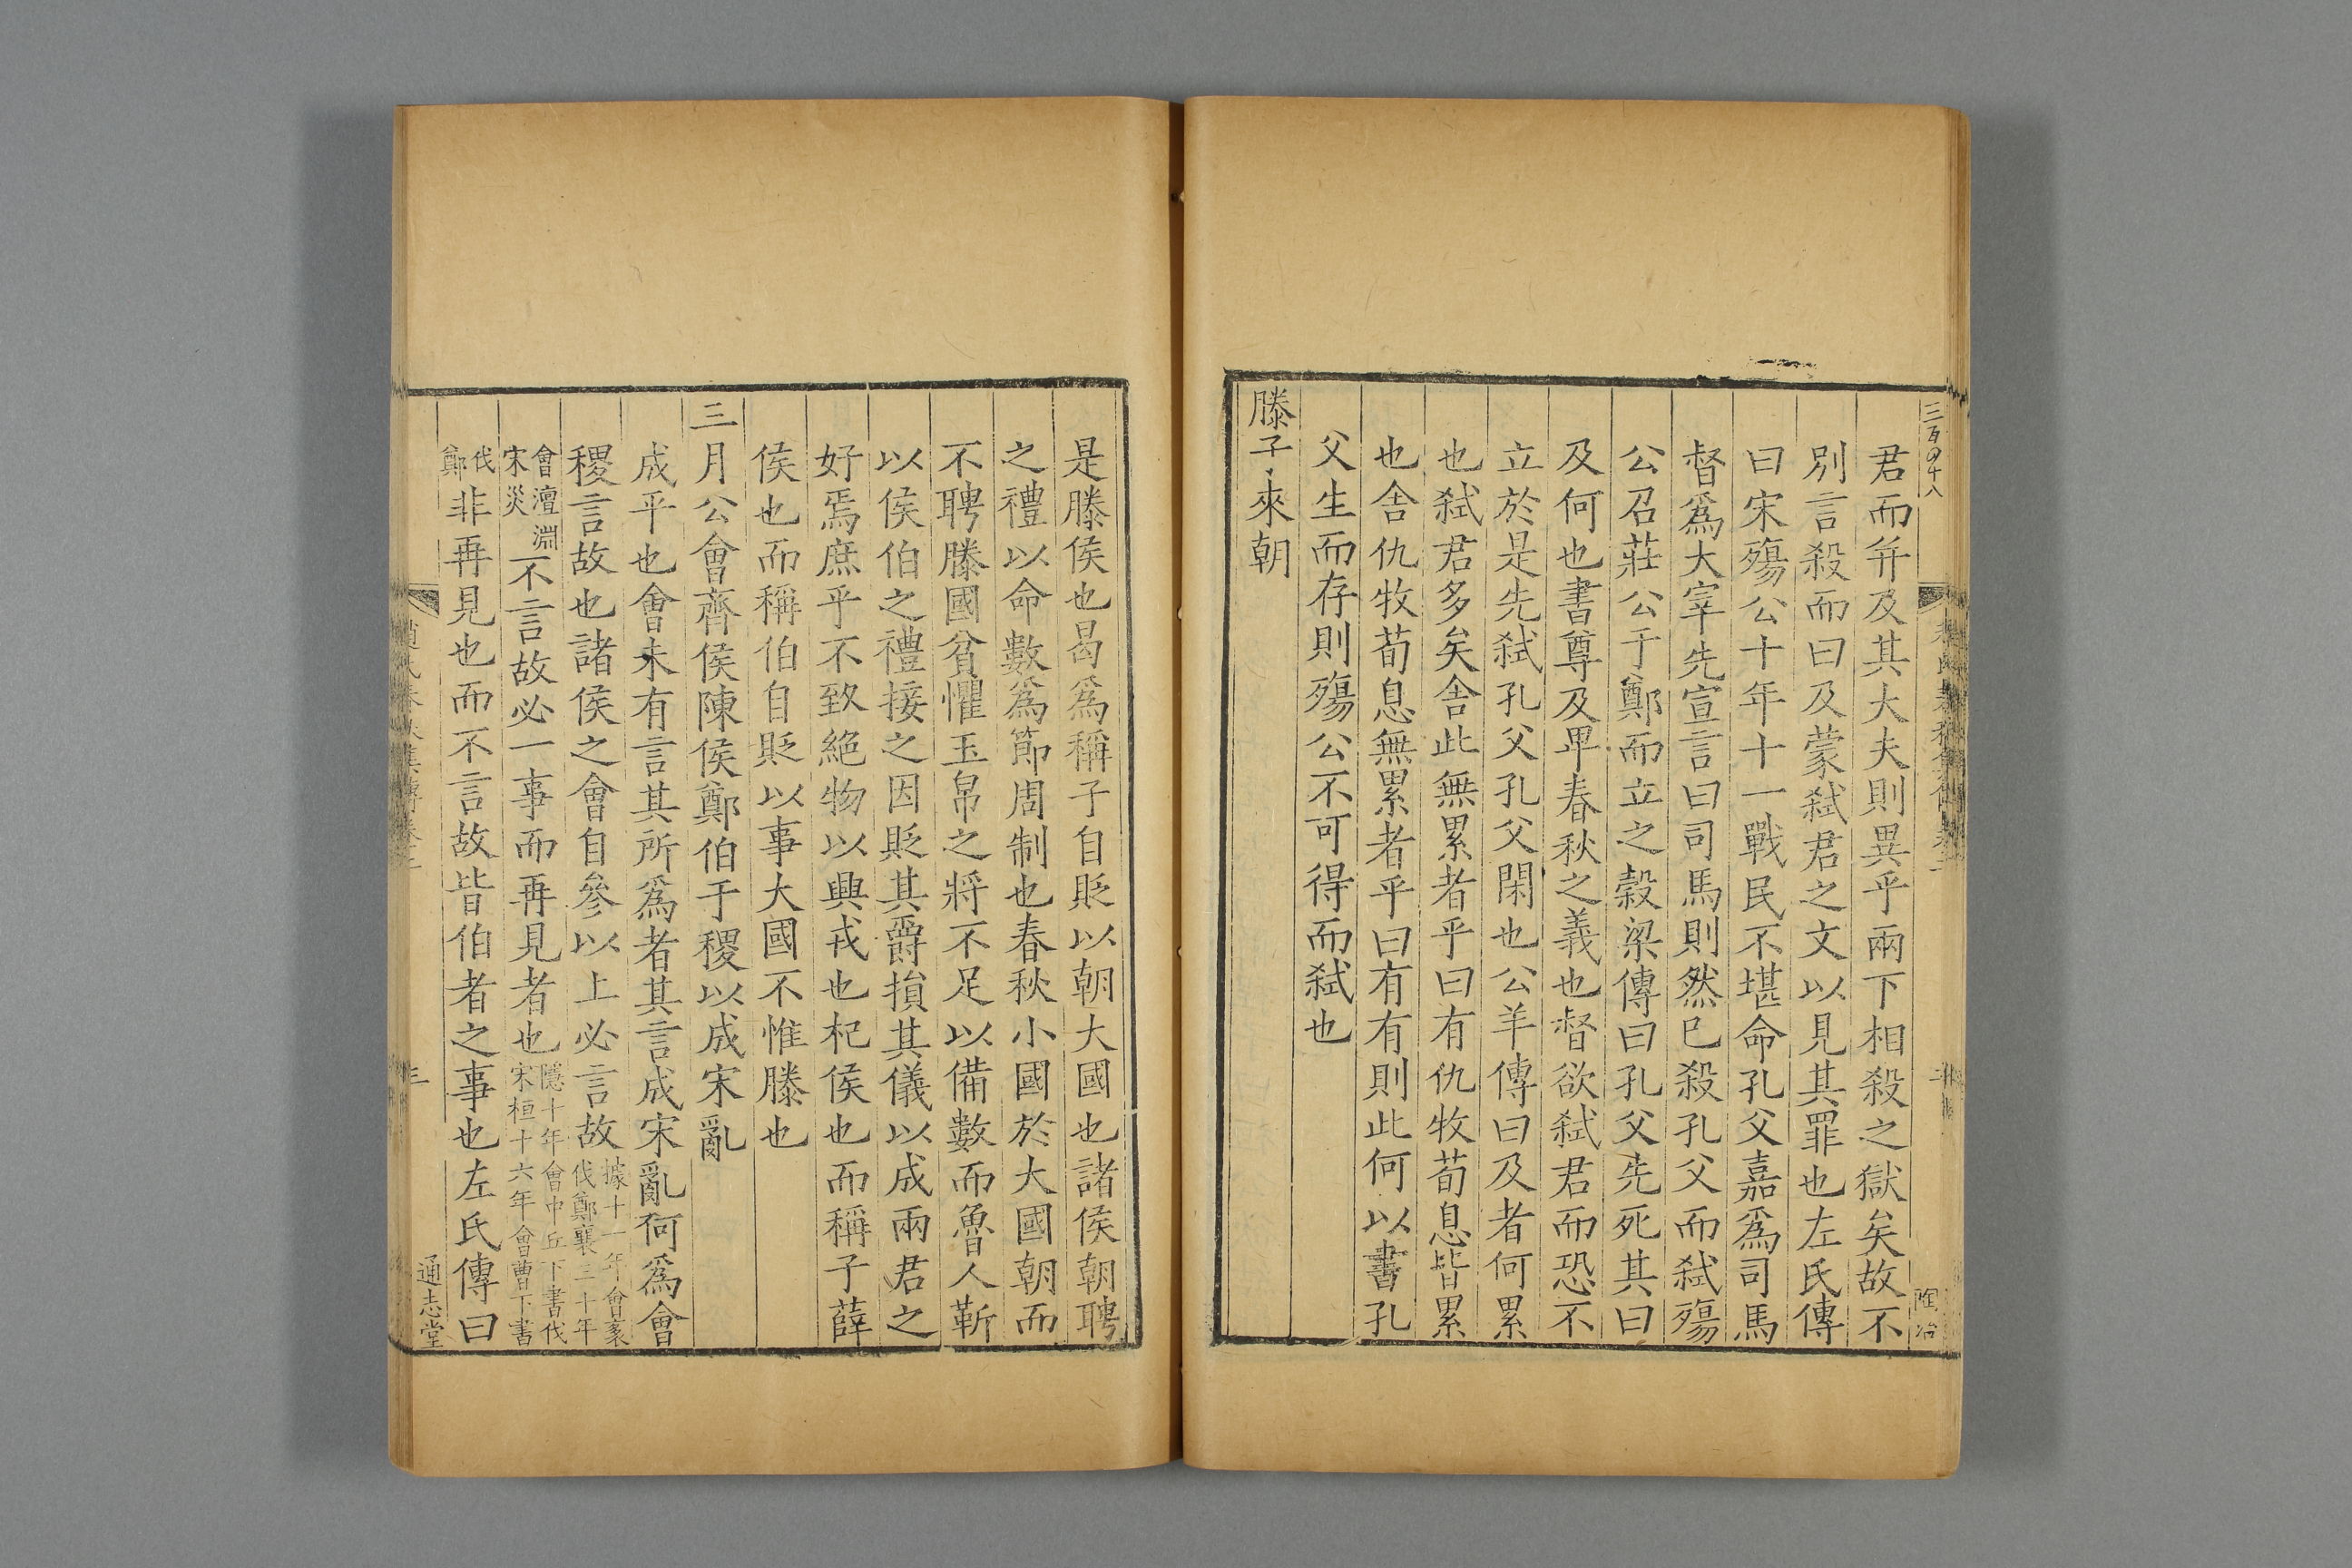 君而并及其大夫則異乎兩下相殺之獄矣故不
別言殺而曰及蒙弒君之文以見其罪也左氏傳
曰宋殤公十年十一戰民不堪命孔父嘉爲司馬
督爲大宰先宣言曰司馬則然已殺孔父而弒殤
公召莊公于鄭而立之穀梁傳曰孔父先死其曰
及何也書尊及卑春秋之義也督欲弒君而恐不
立於是先弒孔父孔父閑也公羊傳曰及者何累
也弒君多矣舍此無累者乎曰有仇牧荀息皆累
也舍仇牧荀息無累者乎曰有有則此何以書孔
父生而存則殤公不可得而弒也
滕子來朝
是滕侯也曷爲稱子自貶以朝大國也諸侯朝聘
之禮以命數爲節周制也春秋小國於大國朝而
不聘滕國貧懼玉帛之將不足以備數而魯人靳
以侯伯之禮接之因貶其爵損其儀以成兩君之
好焉庶乎不致絶物以興戎也杞侯也而稱子薛
侯也而稱伯自貶以事大國不惟滕也
三月公會齊侯陳侯鄭伯于稷以成宋亂
成平也會未有言其所爲者其言成宋亂何爲會
稷言故也諸侯之會自參以上必言故據十一年會袲伐鄭襄三十年
會澶淵宋災不言故必一事而再見者也隱十年會中丘下書伐宋桓十六年會曹下書
伐鄭非再見也而不言故皆伯者之事也左氏傳曰
三百四十八
陶冶
通志堂